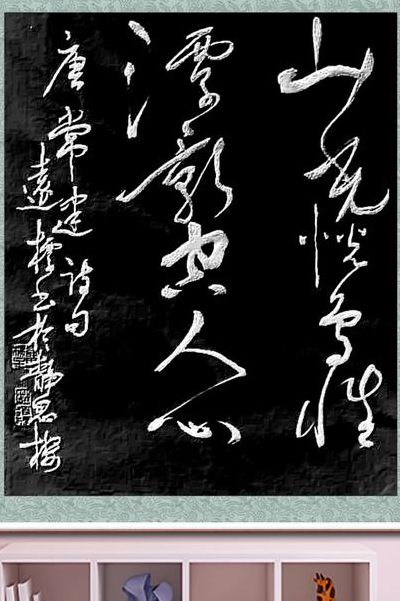 山光悦鸟性
潭影空人心
唐常建诗句
远标书于静思楼